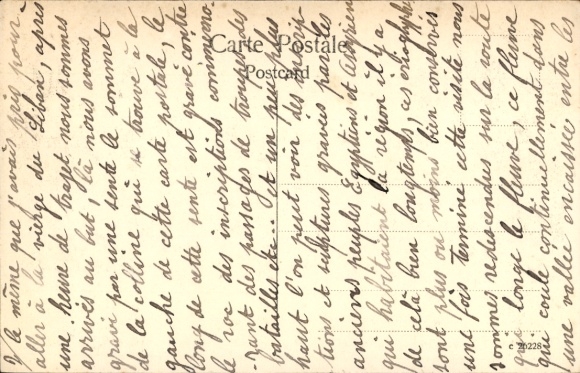 Carte Postale
Postcard
y le même que j'avais pris pour
aller à la vierge du Liban, après
une heure de trajet nous sommes
arrivés au but, là nous avons
gravi par une sente le sommet
de la colline qui se trouve à la
gauche de cette carte postale, le
long de cette sente est gravé contre
le roc des inscriptions commémo-
-rant des passages de troupes des
batailles etc... et un peu plus
haut l'on peut voir des inscrip-
tions et sculptures gravés par les
anciens peuples Egyptiens et Assyriens
qui habitaient la région il y a
de celà bien longtemps, ces
sont plus ou moins bien conservés
une fois terminé cette visite nous
sommes redescendus sur la route
qui longe le fleuve, ce fleuve
qui coule continuellement dans
une vallée encaissée entre les
c 26228